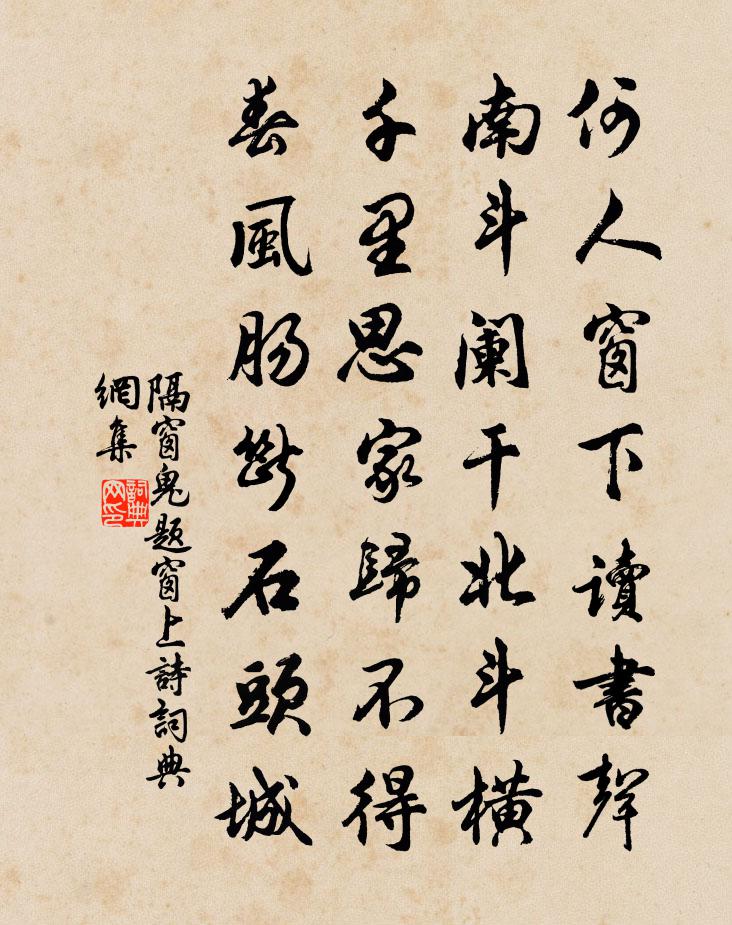 何人窗下讀書聲
南斗闌干北斗橫
千里思家歸不得
春風腸斷石頭城
隔窗鬼題窗上詩詞典
網集
詞典
网印